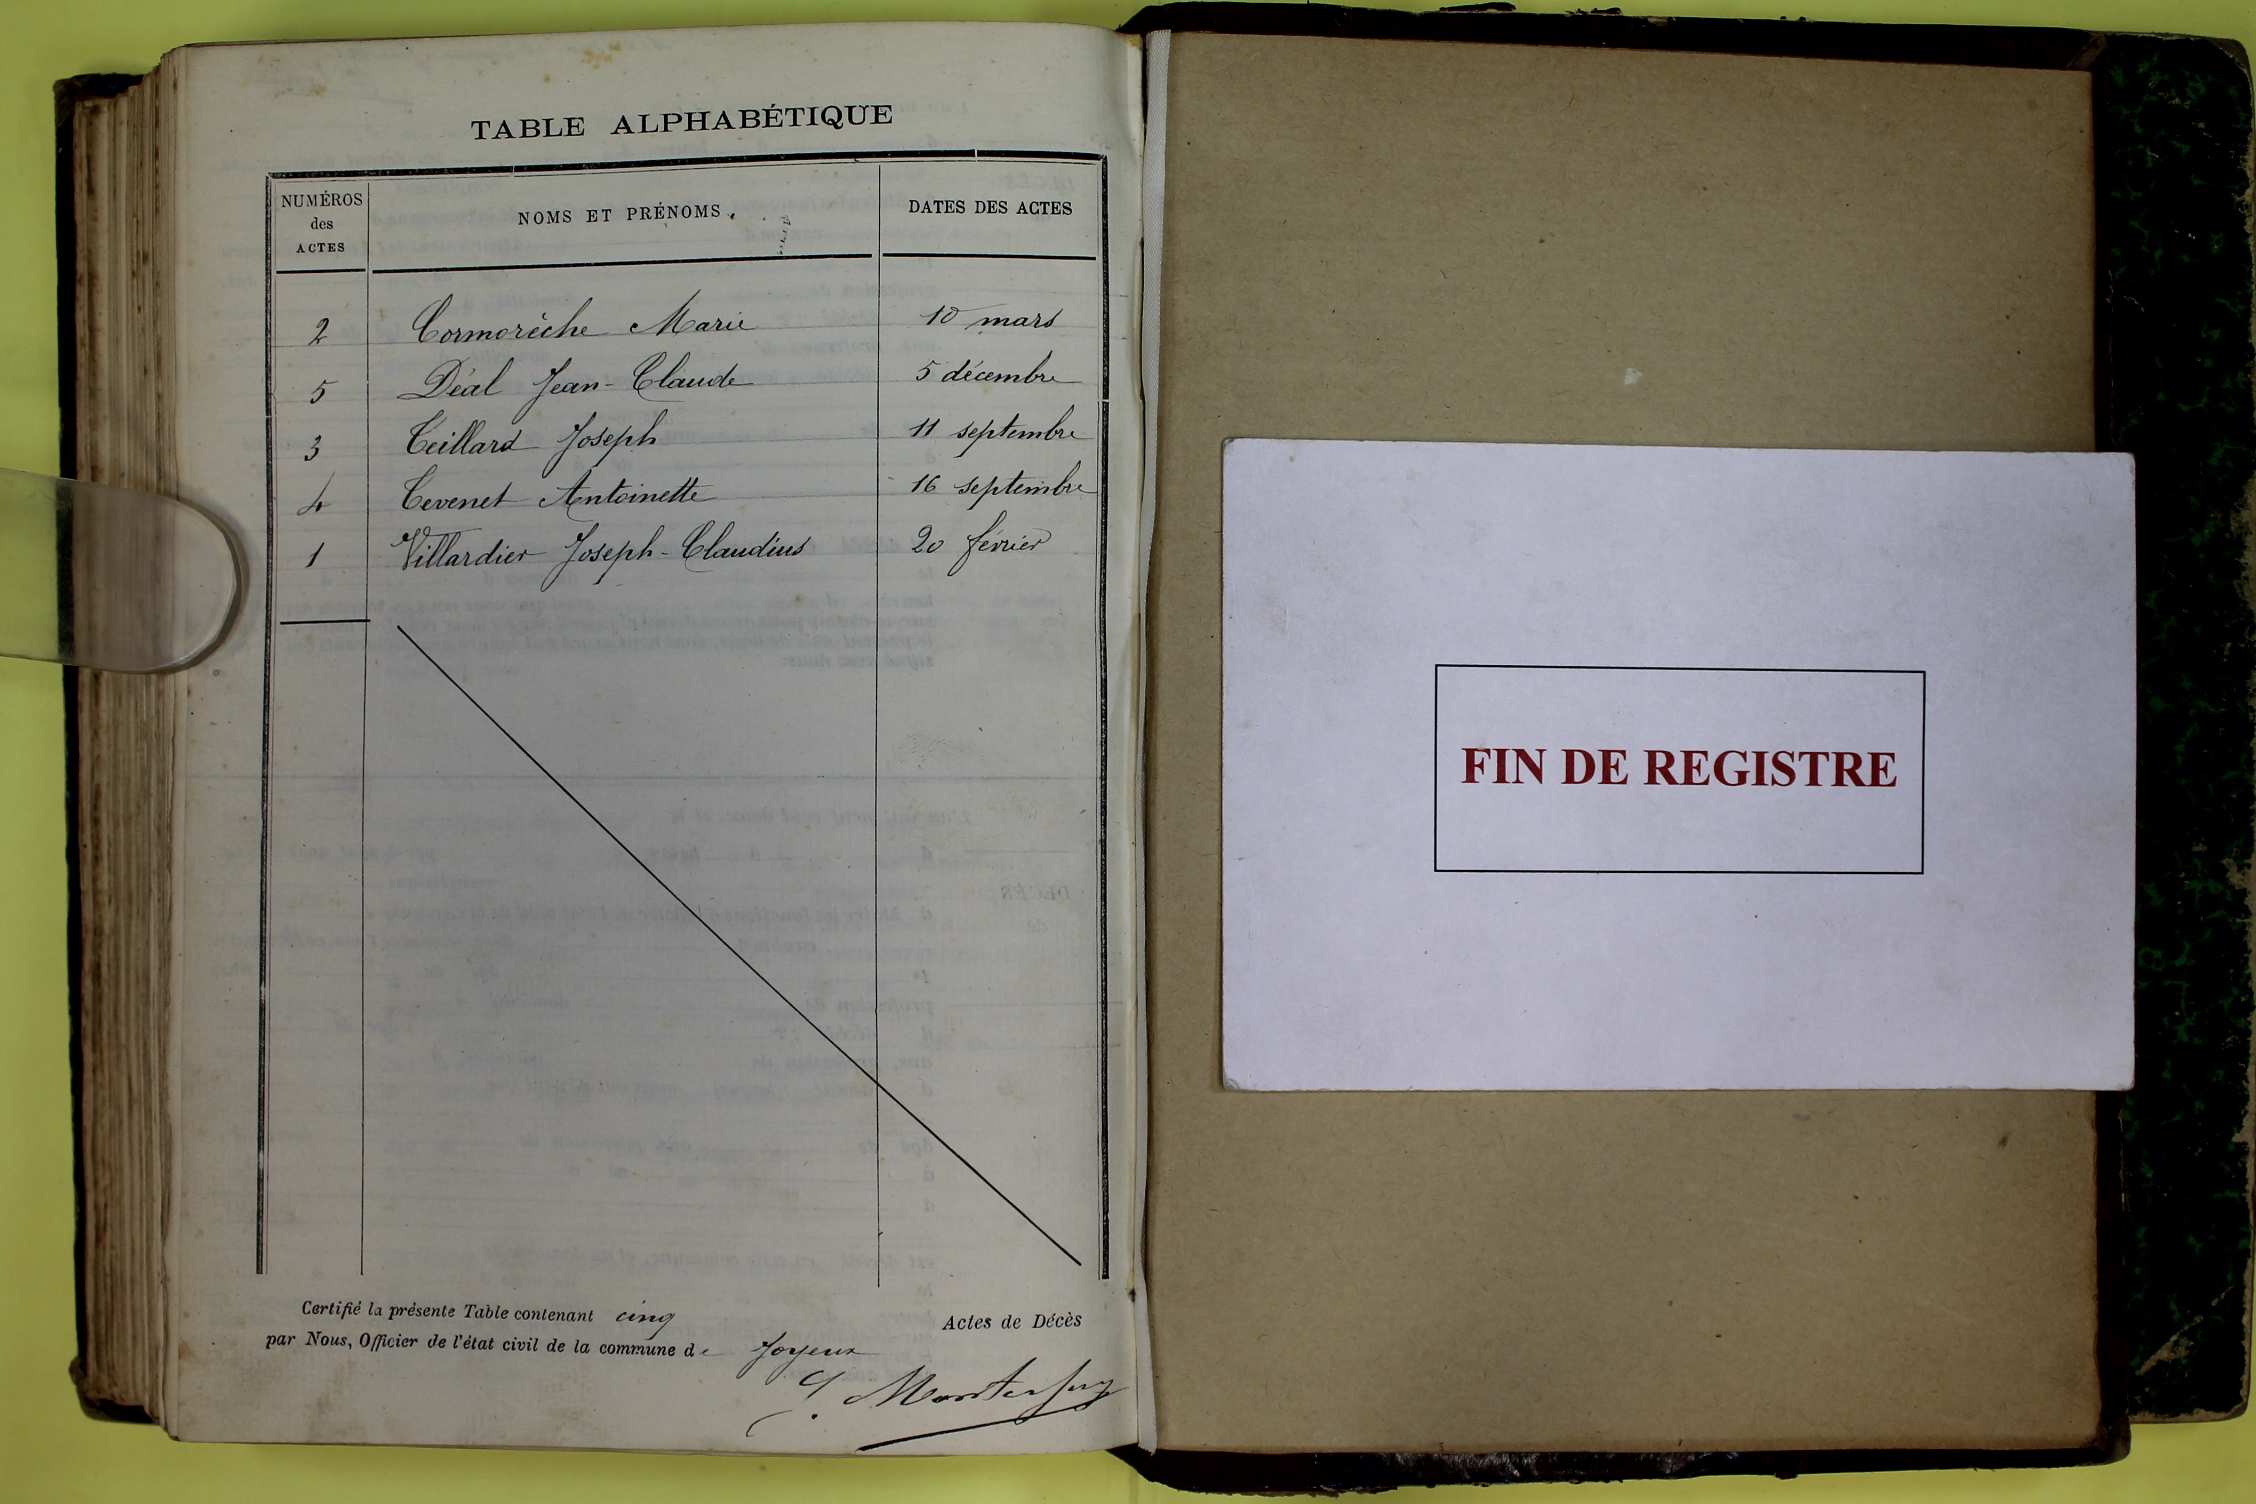 TABLE ALPHABÉTIQUE
NUMÉROS des ACTES NOMS ET PRÉNOMS DATES DES ACTES
2 Cormorèche Marie 10 mars
5 Déal Jean-Claude 5 décembre
3 Teillard Joseph 11 septembre
4 Tevenet Antoinette 16 septembre
1 Villardier Joseph-Claudius 20 février
Certifié la présente Table contenant cinq Actes de Décès
par Nous, Officier de l'état civil de la commune de Joyeux
FIN DE REGISTRE